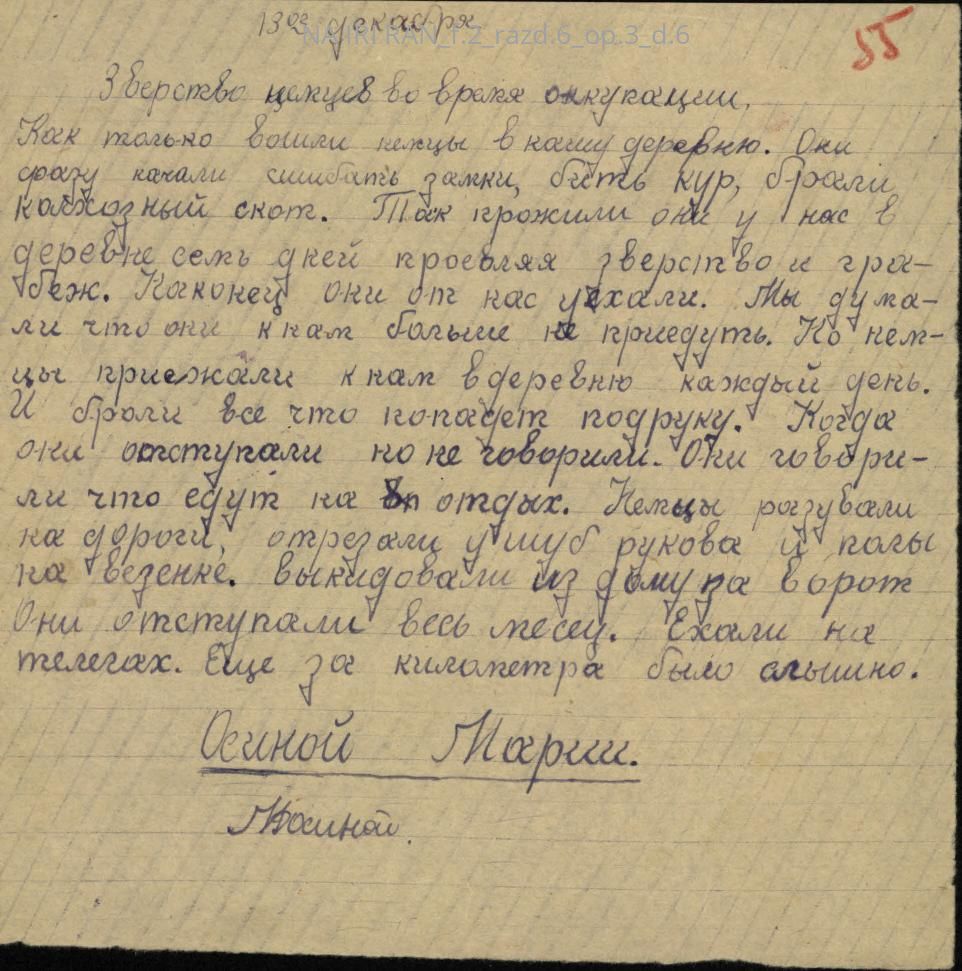 13ое декабря
NA IRI RAN_f.2_razd.6_op.3_d.6
55
Зверство немцев во время оккупации.
Как только вошли немцы в нашу деревню. Они
сразу начали сшибать замки, бить кур, брали
колхозный скот. Так прожили они у нас в
деревне семь дней проевляя зверство и гра-
беж. Наконец они от нас уехали. Мы дума-
ли что они к нам больше не приедуть. Но нем-
цы приежали к нам в деревню каждый день.
И брали все что попадет подруку. Когда
они отступали но не говорили. Они говори-
ли что едут на отдых. Немцы разували
на дороги, отрезали у шуб рукова и полы
на везенке. выкидовали из дому за ворот
Они отступали весь месец. Ехали на
телегах. Еще за километра было слышно.
Осиной Марии.
МОсиной.